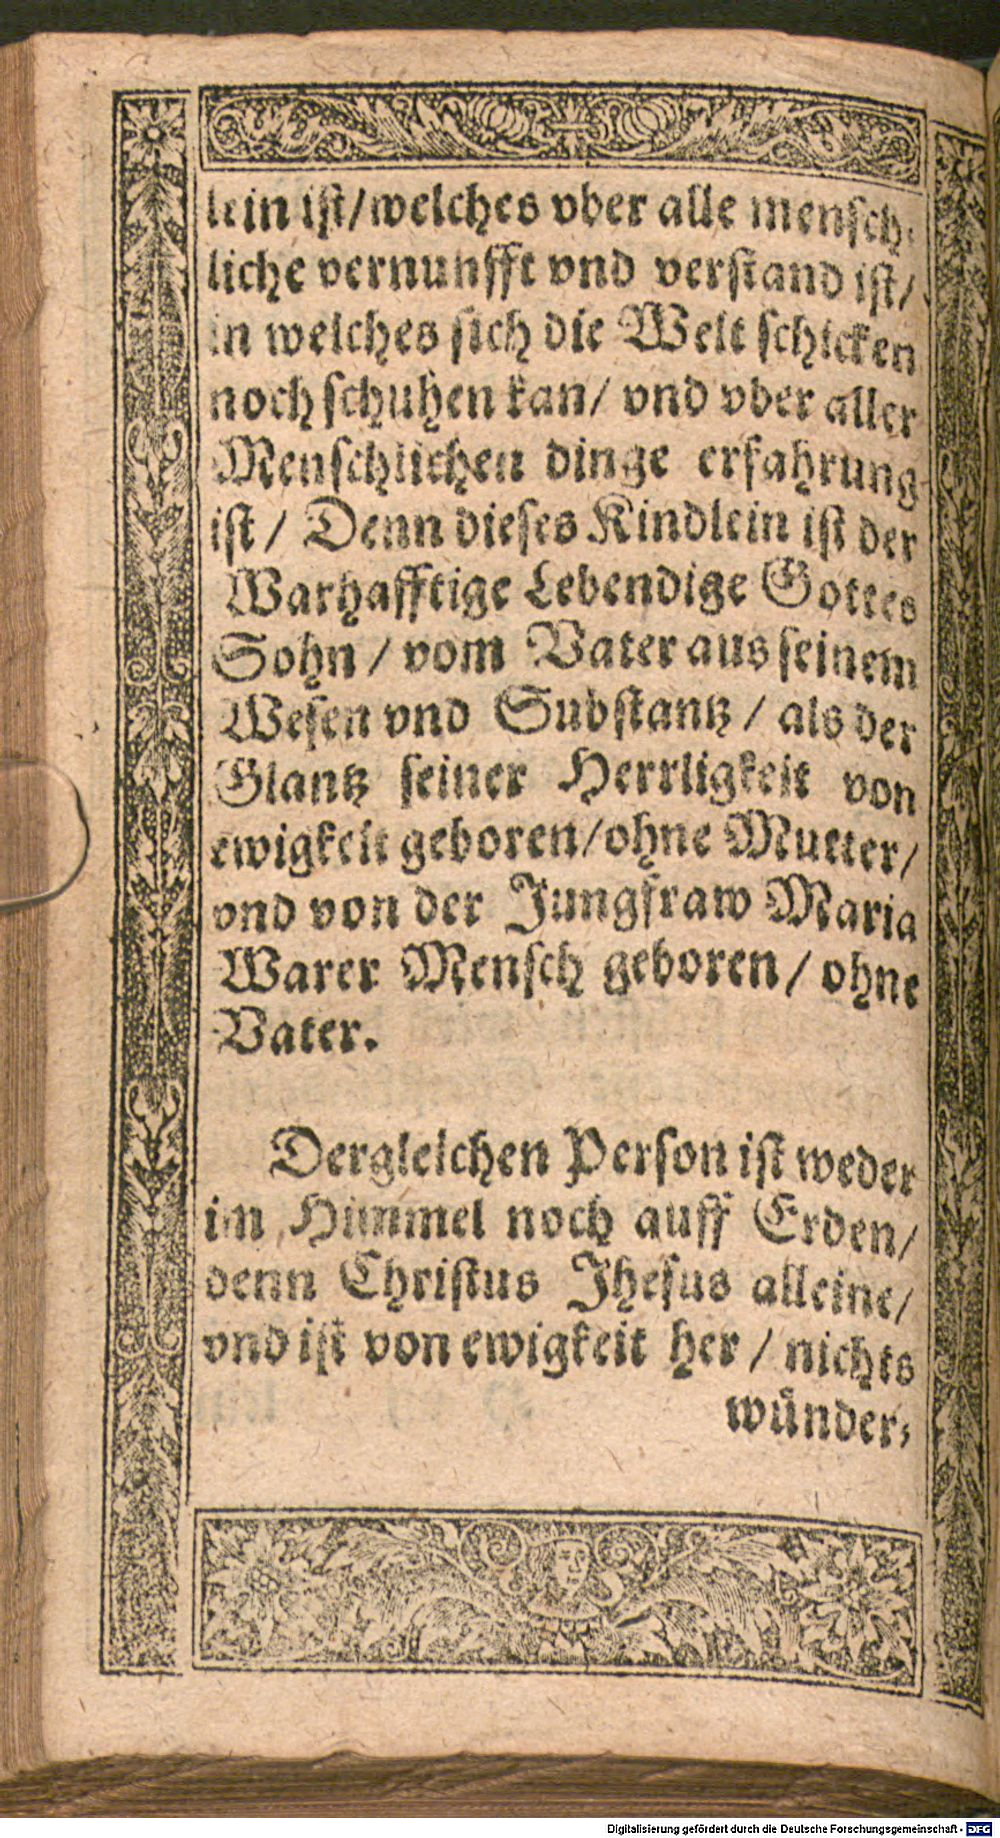 lein ist/welches vber alle mensch-
liche vernunfft vnd verstand ist/
in welches sich die Welt schicken
noch schuhen kan/ vnd vber aller
Menschlichen dinge erfahrung
ist/ Denn dieses Kindlein ist der
Warhafftige Lebendige Gottes
Sohn/ vom Vater aus seinem
Wesen vnd Substantz/ als der
Glantz seiner Herrligkeit von
ewigkeit geboren/ohne Mutter/
vnd von der Jungfraw Maria
Warer Mensch geboren/ ohne
Vater.
Dergleichen Person ist weder
im Himmel noch auff Erden/
denn Christus Jhesus alleine/
vnd ist von ewigkeit her/ nichts
wünder-
Digitalisierung gefördert durch die Deutsche Forschungsgemeinschaft - DFG